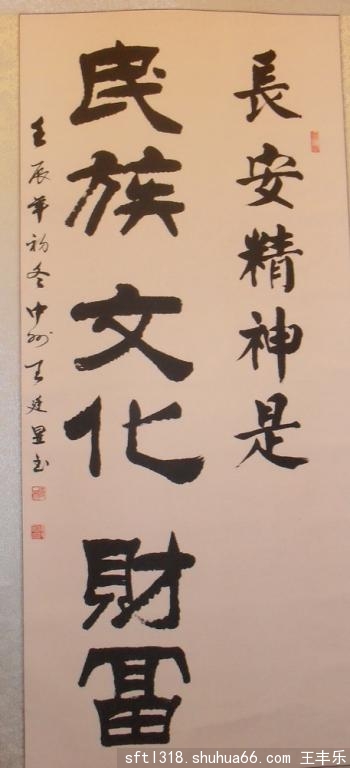 長安精神是
民族文化財冨
壬辰年初冬中州王廷呈书
sftl318.shuhua66.com 王丰乐